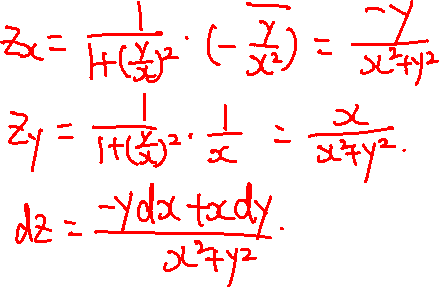 Zx = \frac{1}{1+(\frac{y}{x})^2} · (-\frac{y}{x^2}) = \frac{-y}{x^2+y^2}
Zy = \frac{1}{1+(\frac{y}{x})^2} · \frac{1}{x} = \frac{x}{x^2+y^2}.
dz = \frac{-ydx+xdy}{x^2+y^2}.